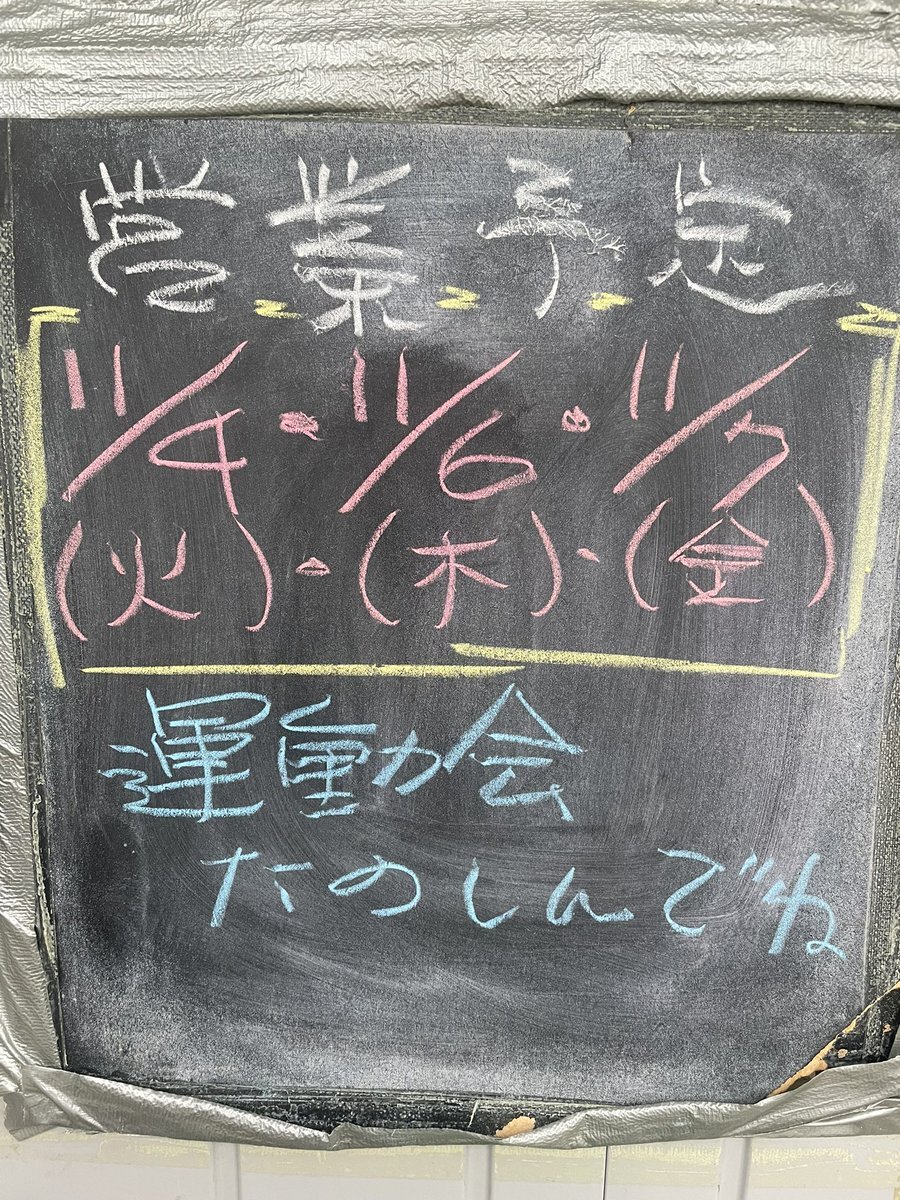 営業予定
11/4・11/6・11/7
(火)・(木)・(金)
運動会
たのしんでね